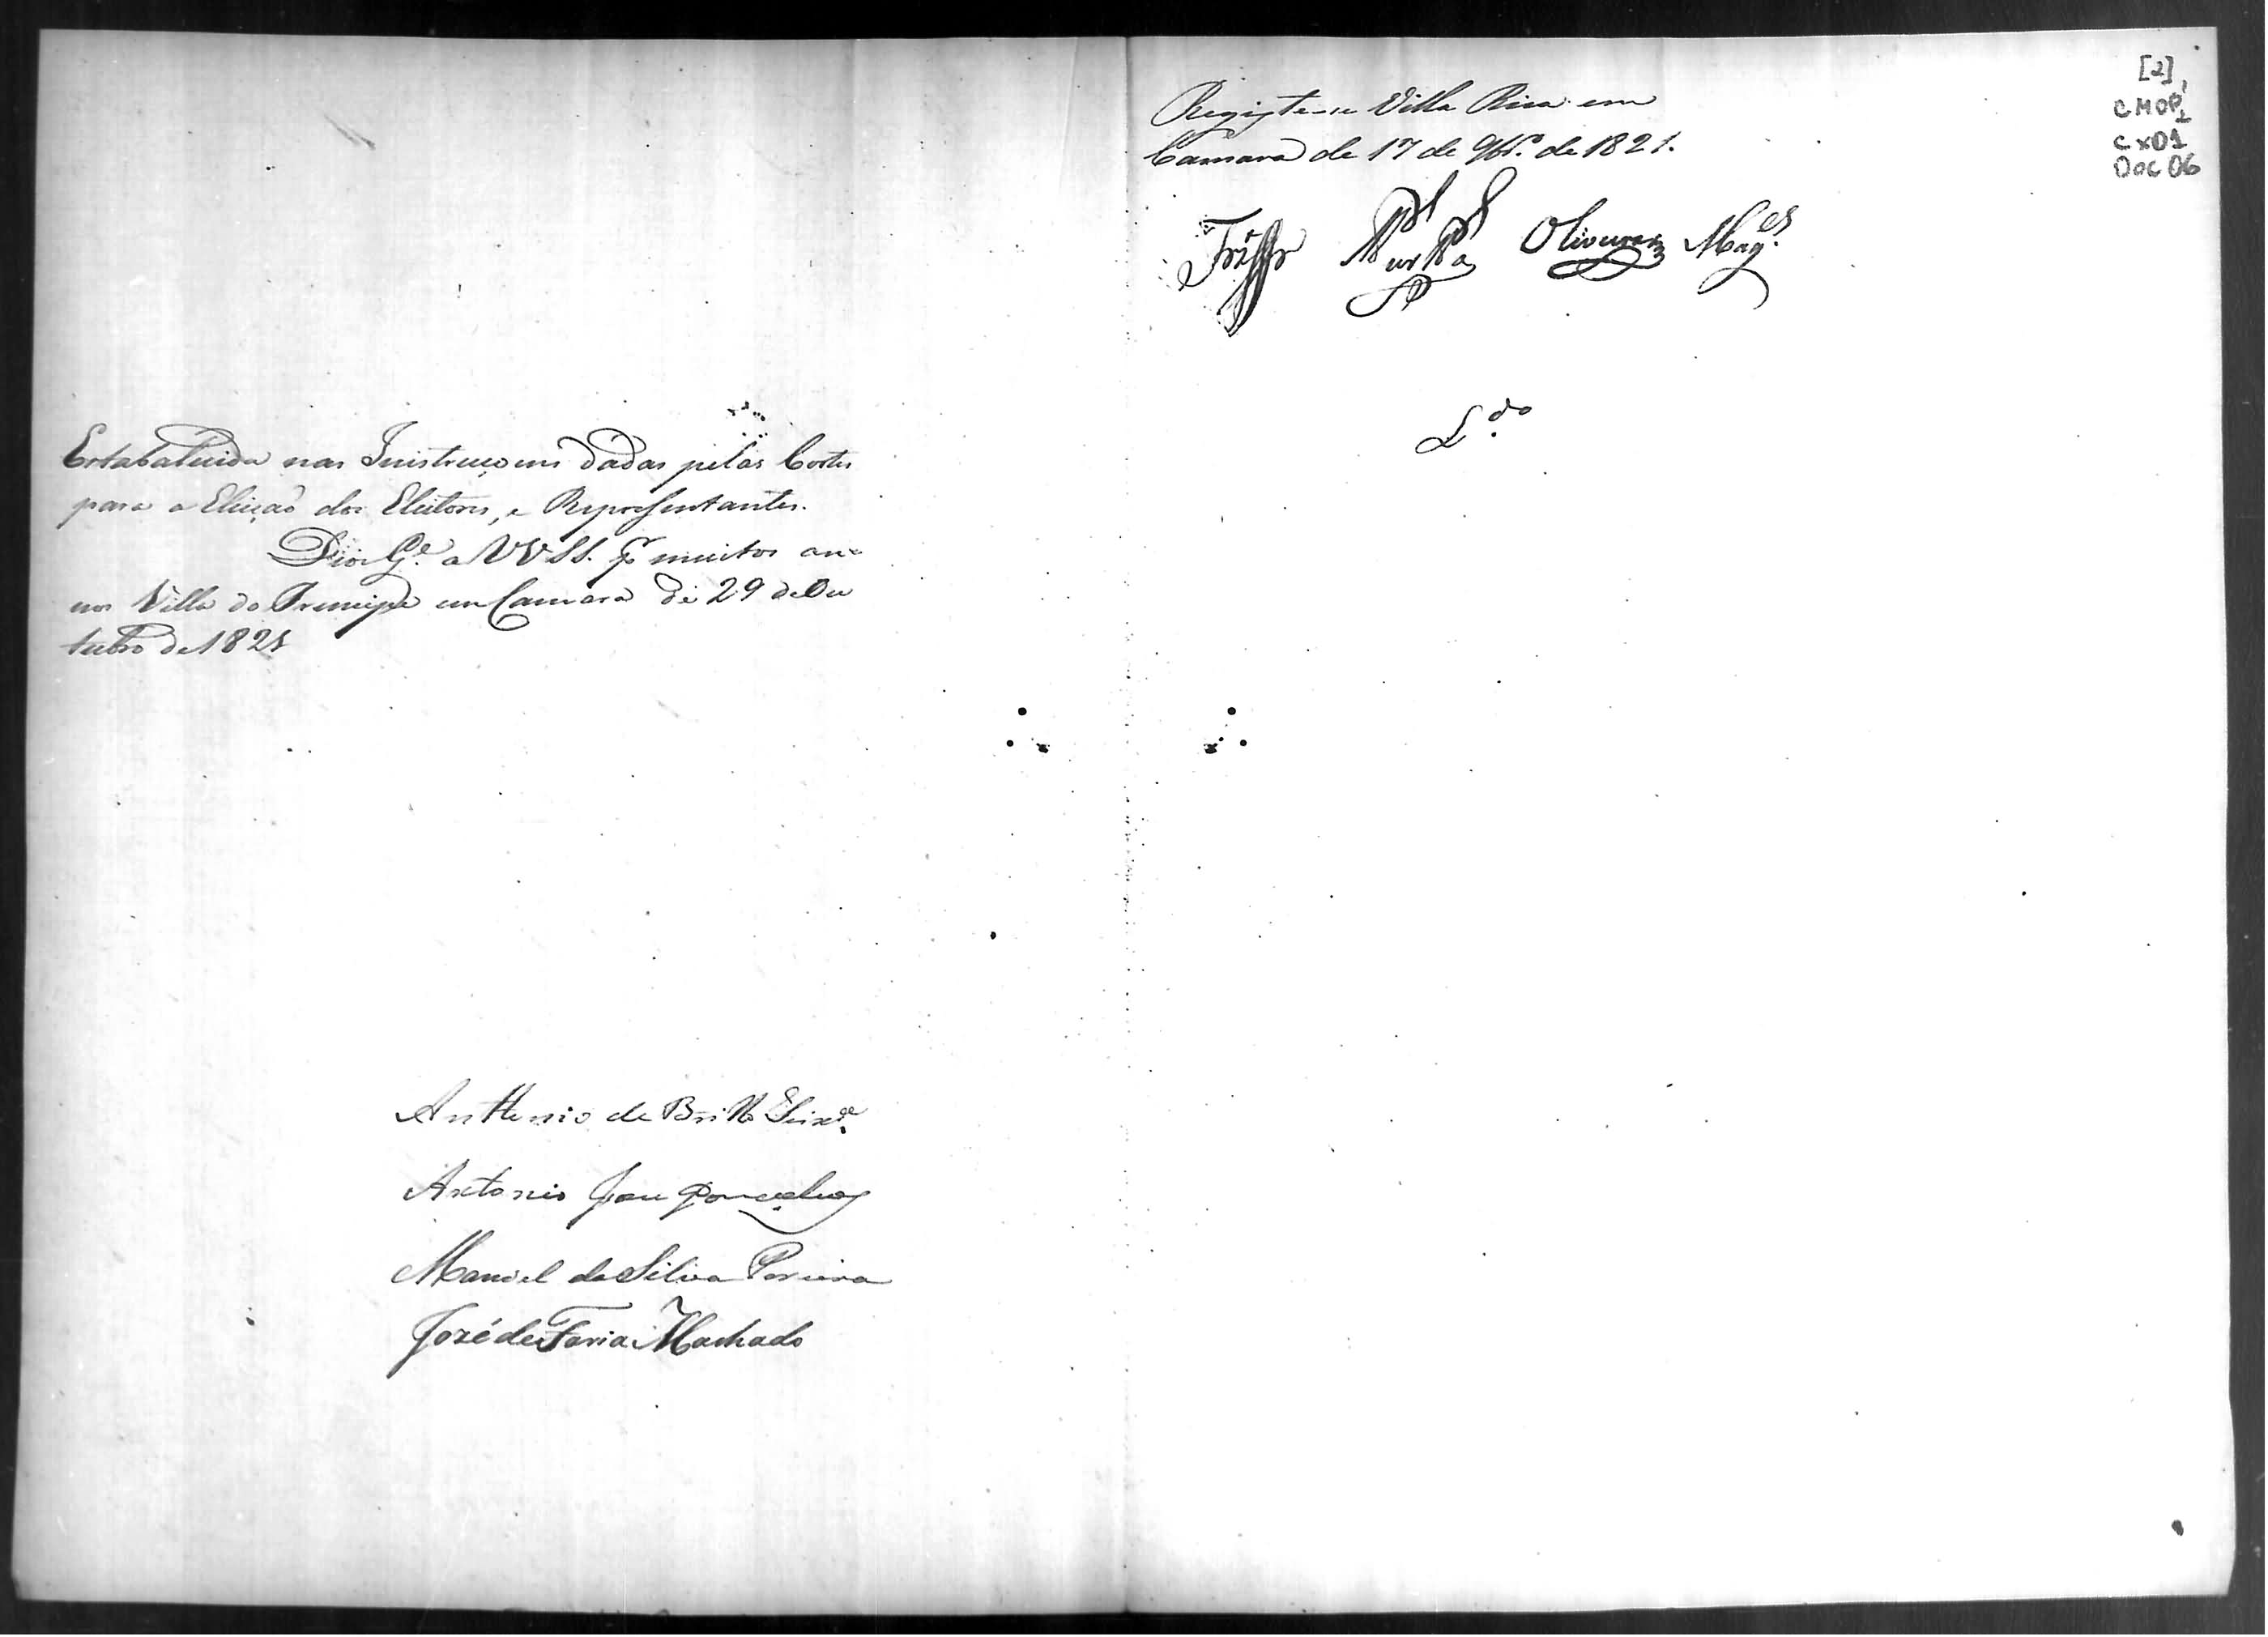 Estabalecida nas Instrucçoens dadas pelas Cortes
para a Eleiçaõ dos Eleitores, e Reprezentantes.
Deos G.e a VVSS. por muitos an-
nos Villa do Principe em Camara de 29 de Ou
tubro de 1821
Anttonio de Britto
Antonio Joze Gonçalves
Manoel da Silva Pereira
Jozé de Faria Machado
Registe-se Villa Rica em
Camara de 17 de 9br.º de 1821.
Oliveira Mag.es
L.do
[2]
CMOP
Cx01
Doc 06